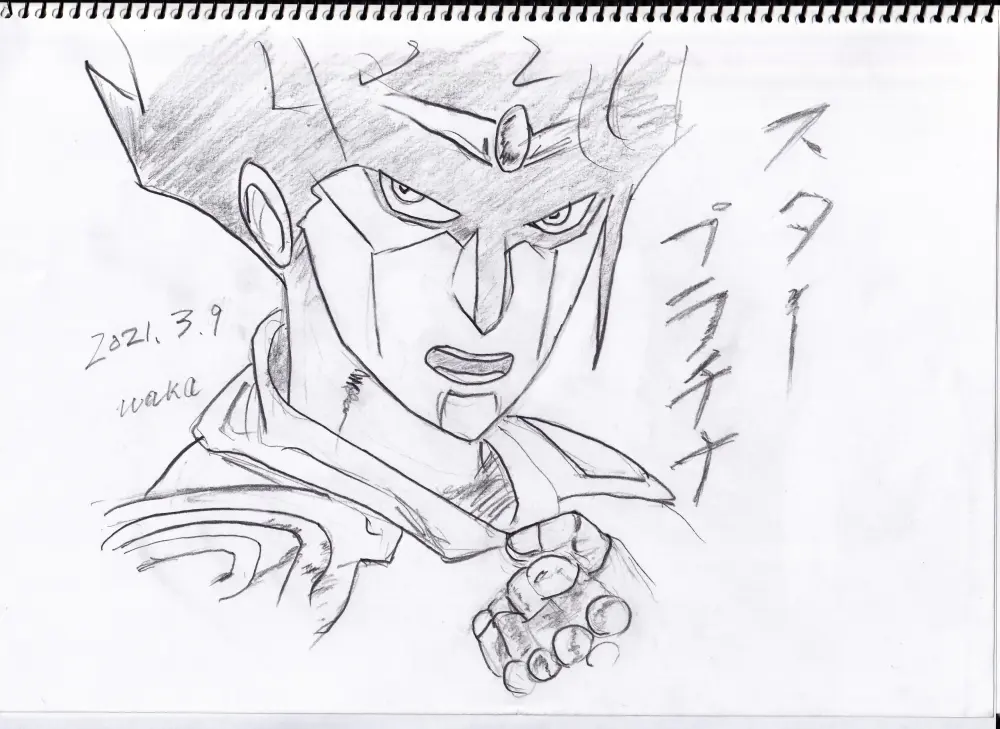 スター
プラチナ
2021.3.9
waka